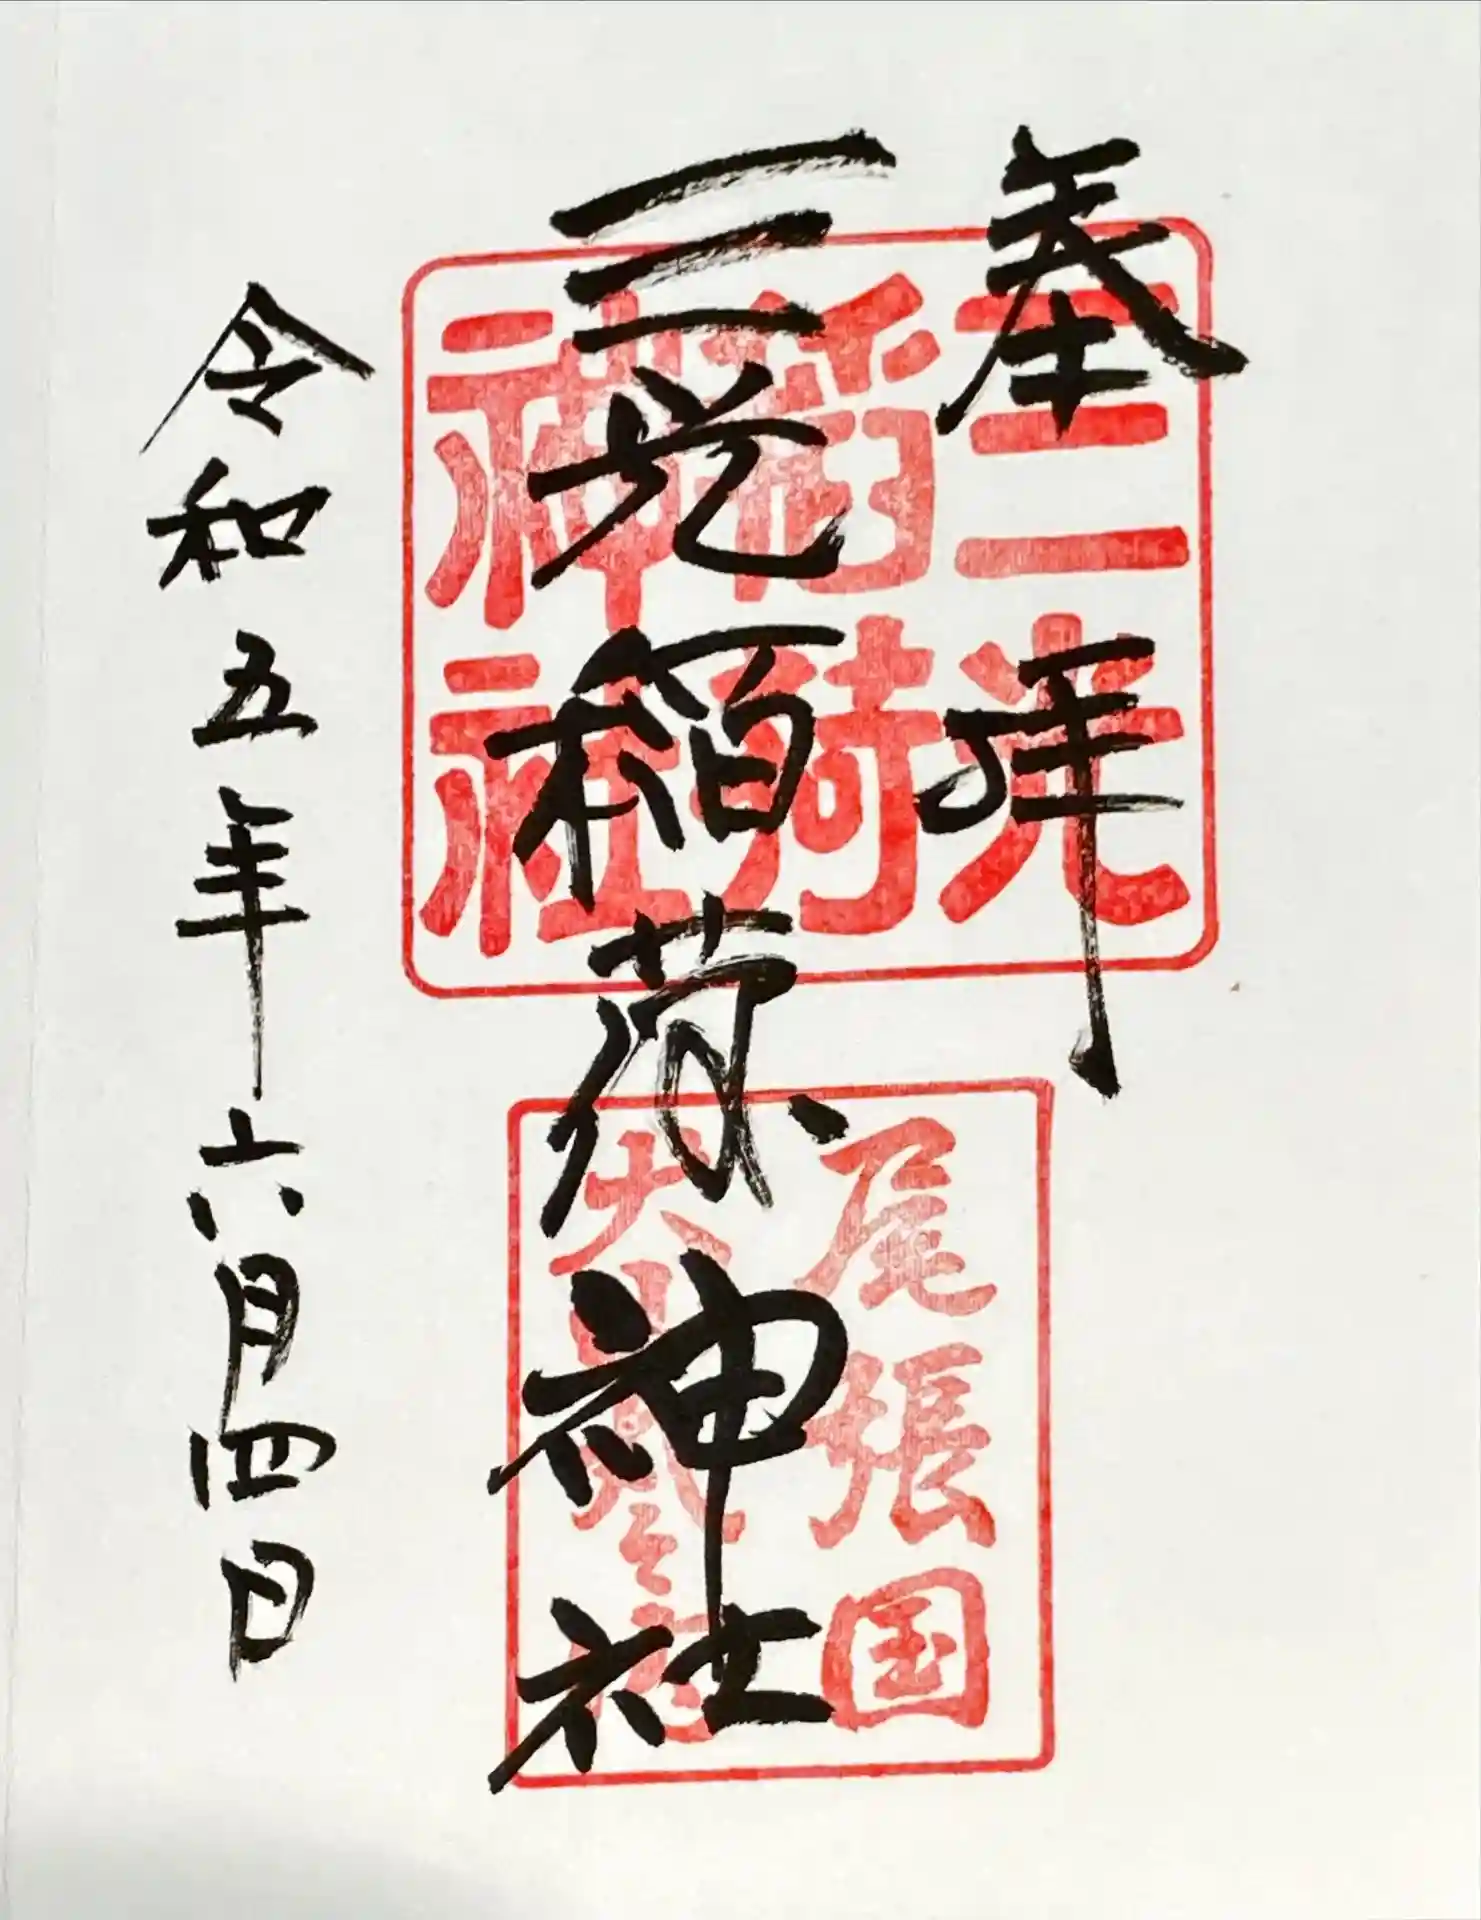 奉拝
三光稲荷神社
令和五年六月四日
三光
稲荷
神社
尾張国
犬山